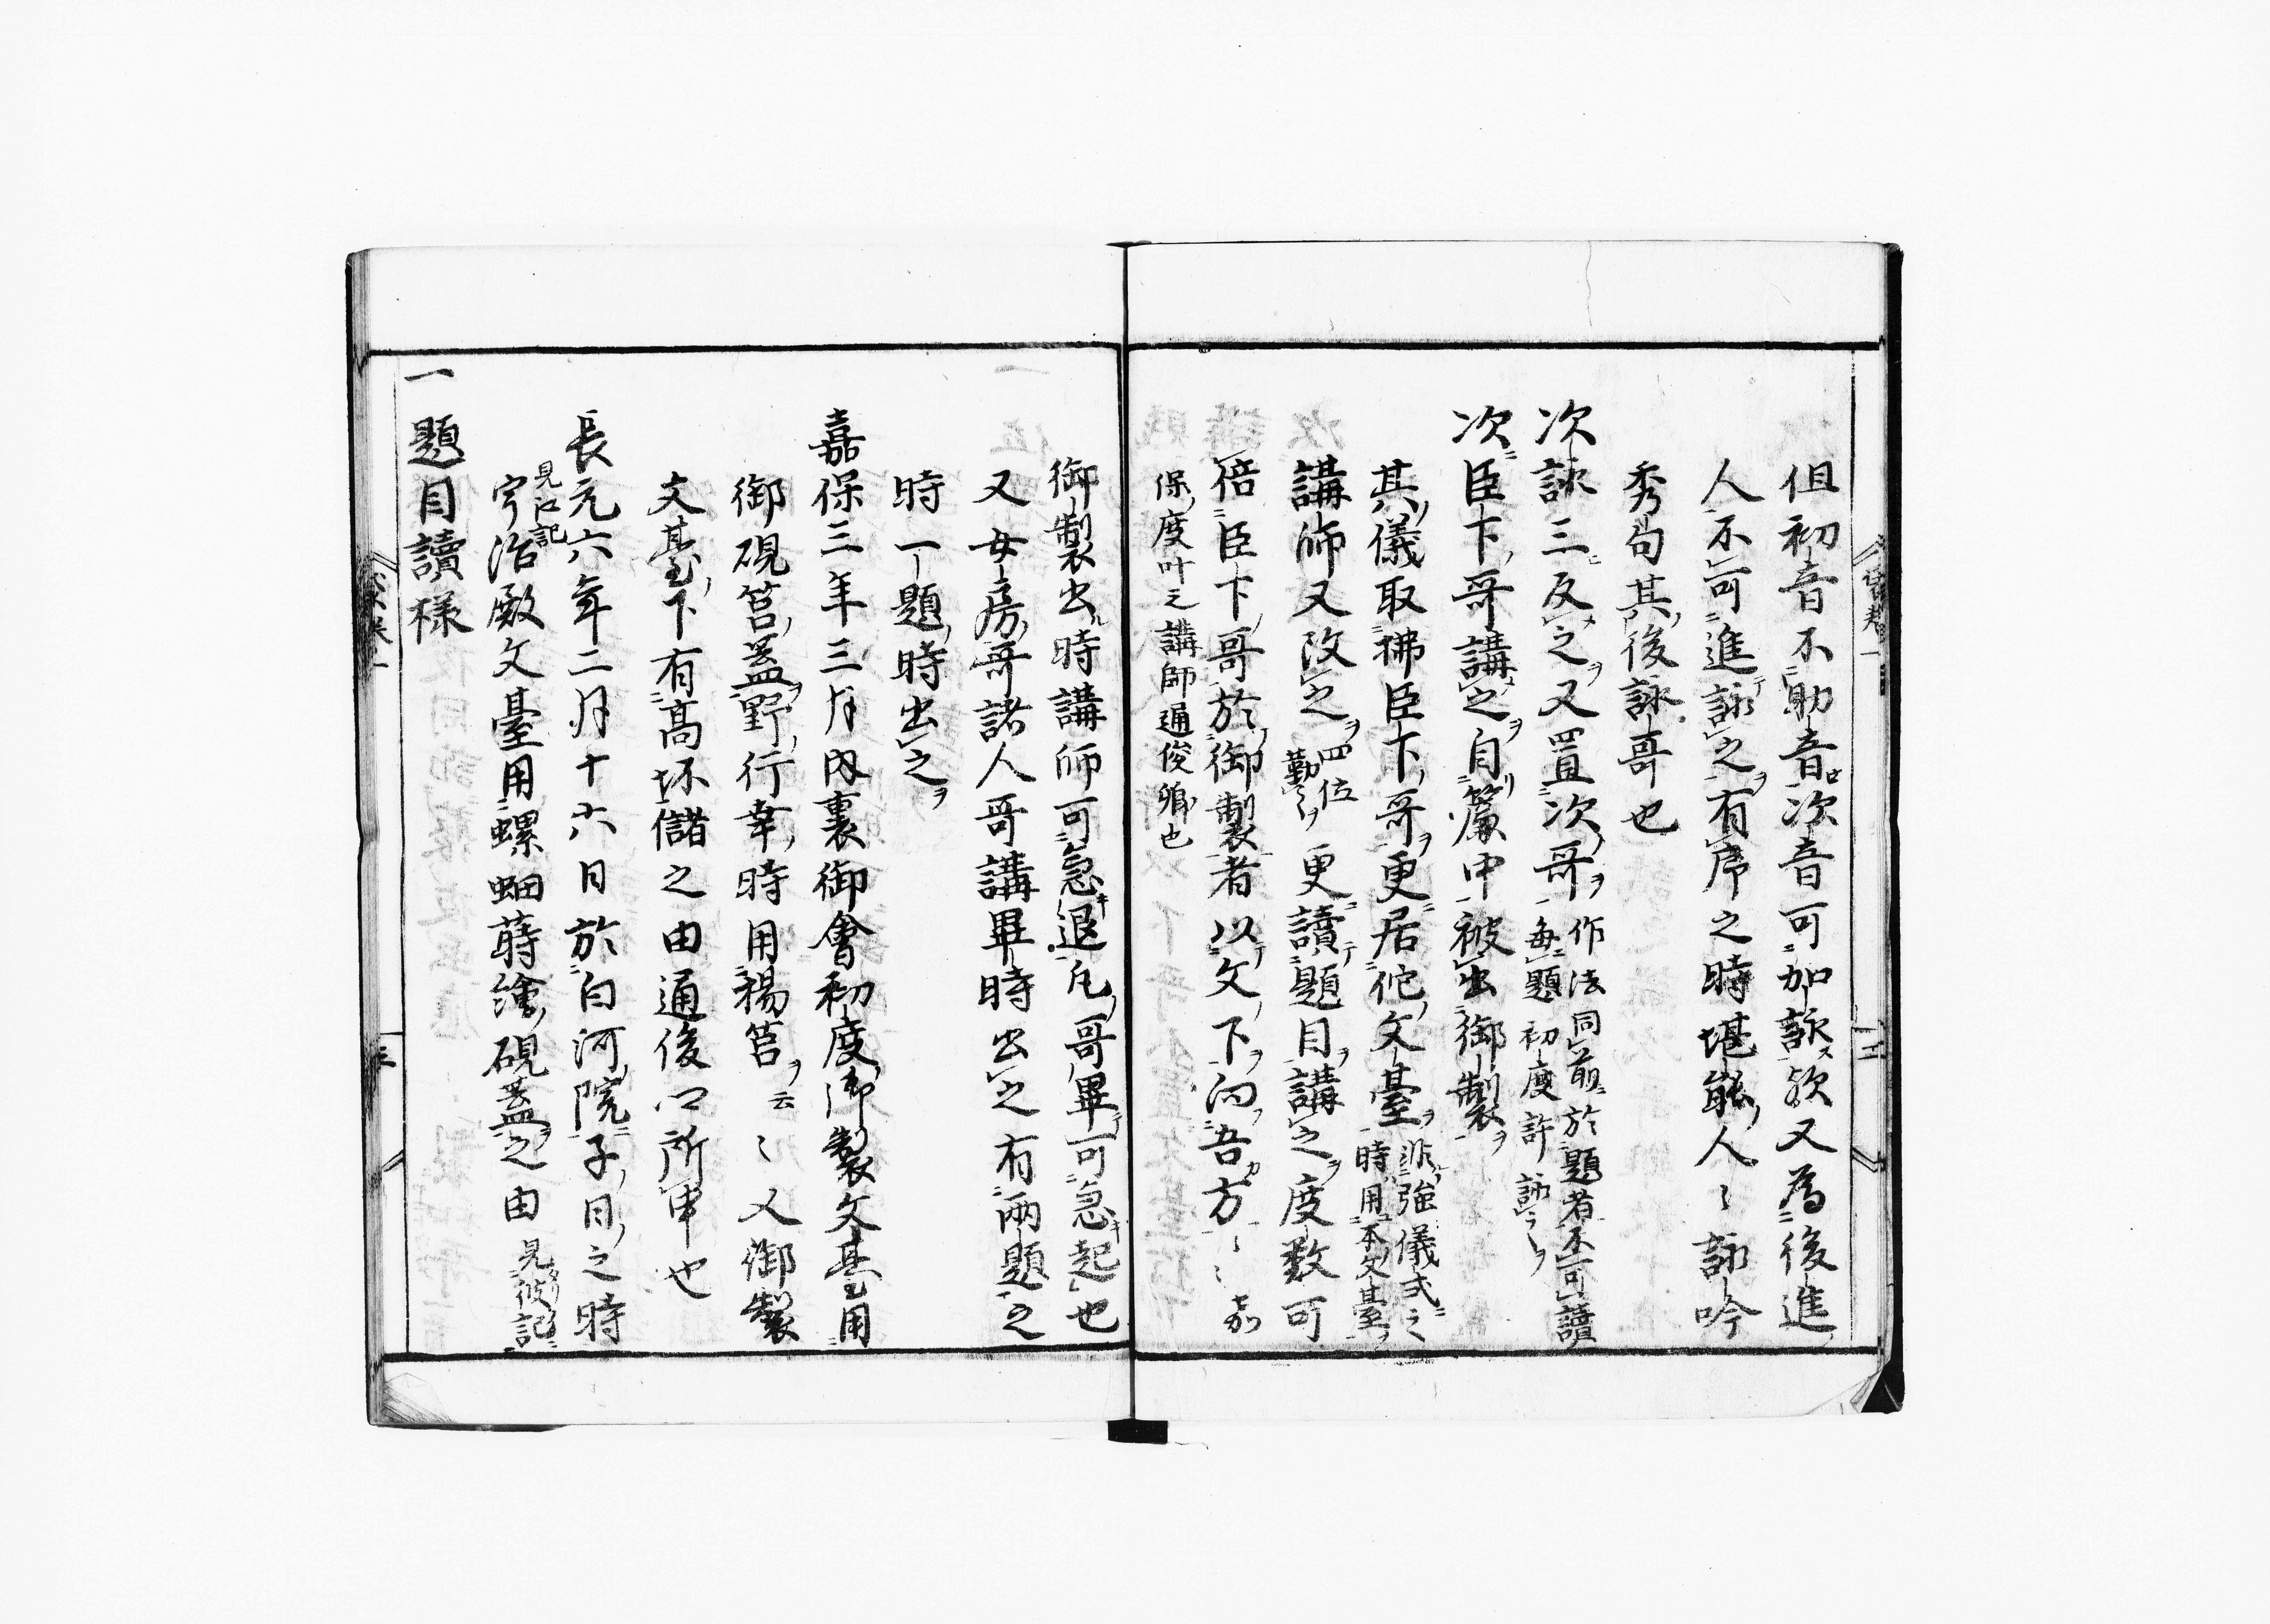 但初音不助音次音可加詠欤又為後進
人不可進詠之有序之時堪能人〻詠吟
秀句其後詠哥也
次詠三反之又置次哥作法同前於題者不可讀
毎題初度許詠之
次臣下哥講之自簾中被出御製
其儀取掃臣下哥更居他文臺非強儀式之
時用本文臺
講師又改之四位
勤之更讀題目講之度数可
倍臣下哥於御製者以文下向吾方〻〻嘉
保度叶之講師通俊卿也
御製出時講師可急退凡哥畢可急起也
又女房哥諸人哥講畢時出之有兩題之
時一題時出之
嘉保三年三月内裏御會初度御製文臺用
御硯筥蓋野行幸時用楊筥云〻又御製
文臺下有高坏儲之由通俊口所申也
長元六年二月十六日於白河院子日之時
見江記
宇治殿文臺用螺鈿蒔繪硯蓋之由見彼記
一題目讀様